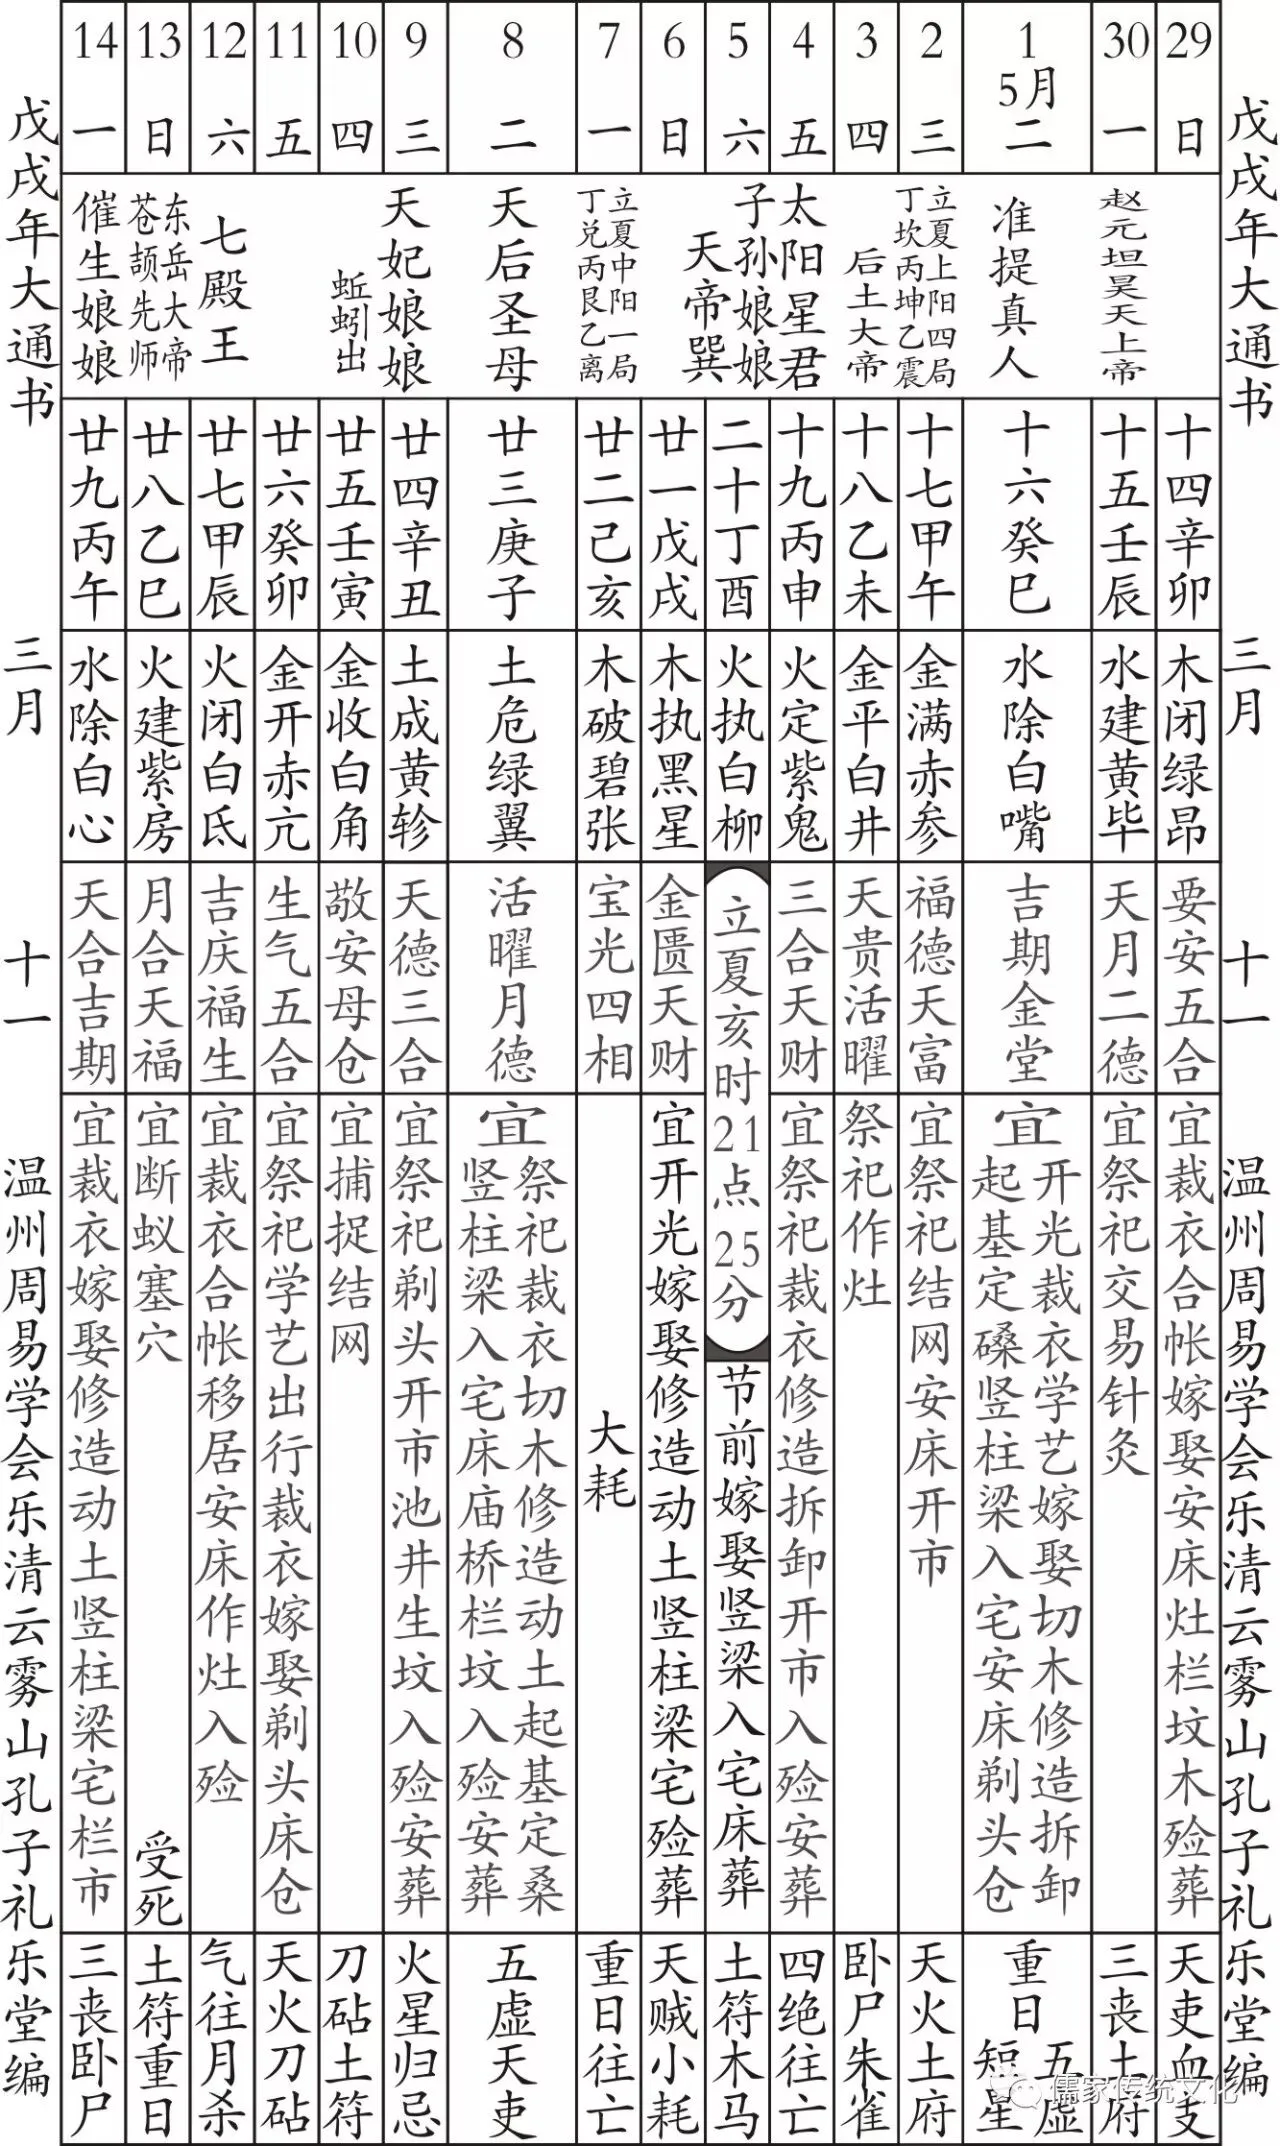 戊戌年大通书 三月 十一 温州周易学会乐清云雾山孔子礼乐堂编
29 日
十四辛卯
木闭绿昴
要安五合
宜裁衣合帐嫁娶安床灶栏坟木殓葬
天吏血支
30 一
赵元坦昊天上帝
十五壬辰
水建黄毕
天月二德
宜祭祀交易针灸
三丧土府
1 5月 二
准提真人
十六癸巳
水除白嘴
吉期金堂
宜
开光裁衣学艺嫁娶切木修造拆卸
起基定磉竖柱梁入宅安床剃头仓
重日
五虚
短星
2 三
立夏上阳四局
丁坎丙坤乙震
十七甲午
金满赤参
福德天富
宜祭祀结网安床开市
天火土府
3 四
后土大帝
十八乙未
金平白井
天贵活曜
祭祀作灶
卧尸朱雀
4 五
太阳星君
十九丙申
火定紫鬼
三合天财
宜祭祀裁衣修造拆卸开市入殓安葬
四绝往亡
5 六
子孙娘娘
天帝巽
二十丁酉
火执白柳
立夏亥时21点25分
节前嫁娶竖梁入宅床葬
土符木马
6 日
廿一戊戌
木执黑星
金匮天财
宜开光嫁娶修造动土竖柱梁宅殓葬
天贼小耗
7 一
立夏中阳一局
丁兑丙艮乙离
廿二己亥
木破碧张
宝光四相
大耗
重日往亡
8 二
天后圣母
廿三庚子
土危绿翼
活曜月德
宜
祭祀裁衣切木修造动土起基定桑
竖柱梁入宅床庙桥栏坟入殓安葬
五虚天吏
9 三
天妃娘娘
廿四辛丑
土成黄轸
天德三合
宜祭祀剃头开市池井生坟入殓安葬
火星归忌
10 四
蚯蚓出
廿五壬寅
金收白角
敬安母仓
宜捕捉结网
刀砧土符
11 五
廿六癸卯
金开赤亢
生气五合
宜祭祀学艺出行裁衣嫁娶剃头床仓
天火刀砧
12 六
七殿王
廿七甲辰
火闭白氐
吉庆福生
宜裁衣合帐移居安床作灶入殓
气往月杀
13 日
东岳大帝
苍颉先师
廿八乙巳
火建紫房
月合天福
宜断蚁塞穴
受死
土符重日
14 一
催生娘娘
廿九丙午
水除白心
天合吉期
宜裁衣嫁娶修造动土竖柱梁宅栏市
三丧卧尸
戊戌年大通书 三月 十一 温州周易学会乐清云雾山孔子礼乐堂编
儒家传统文化